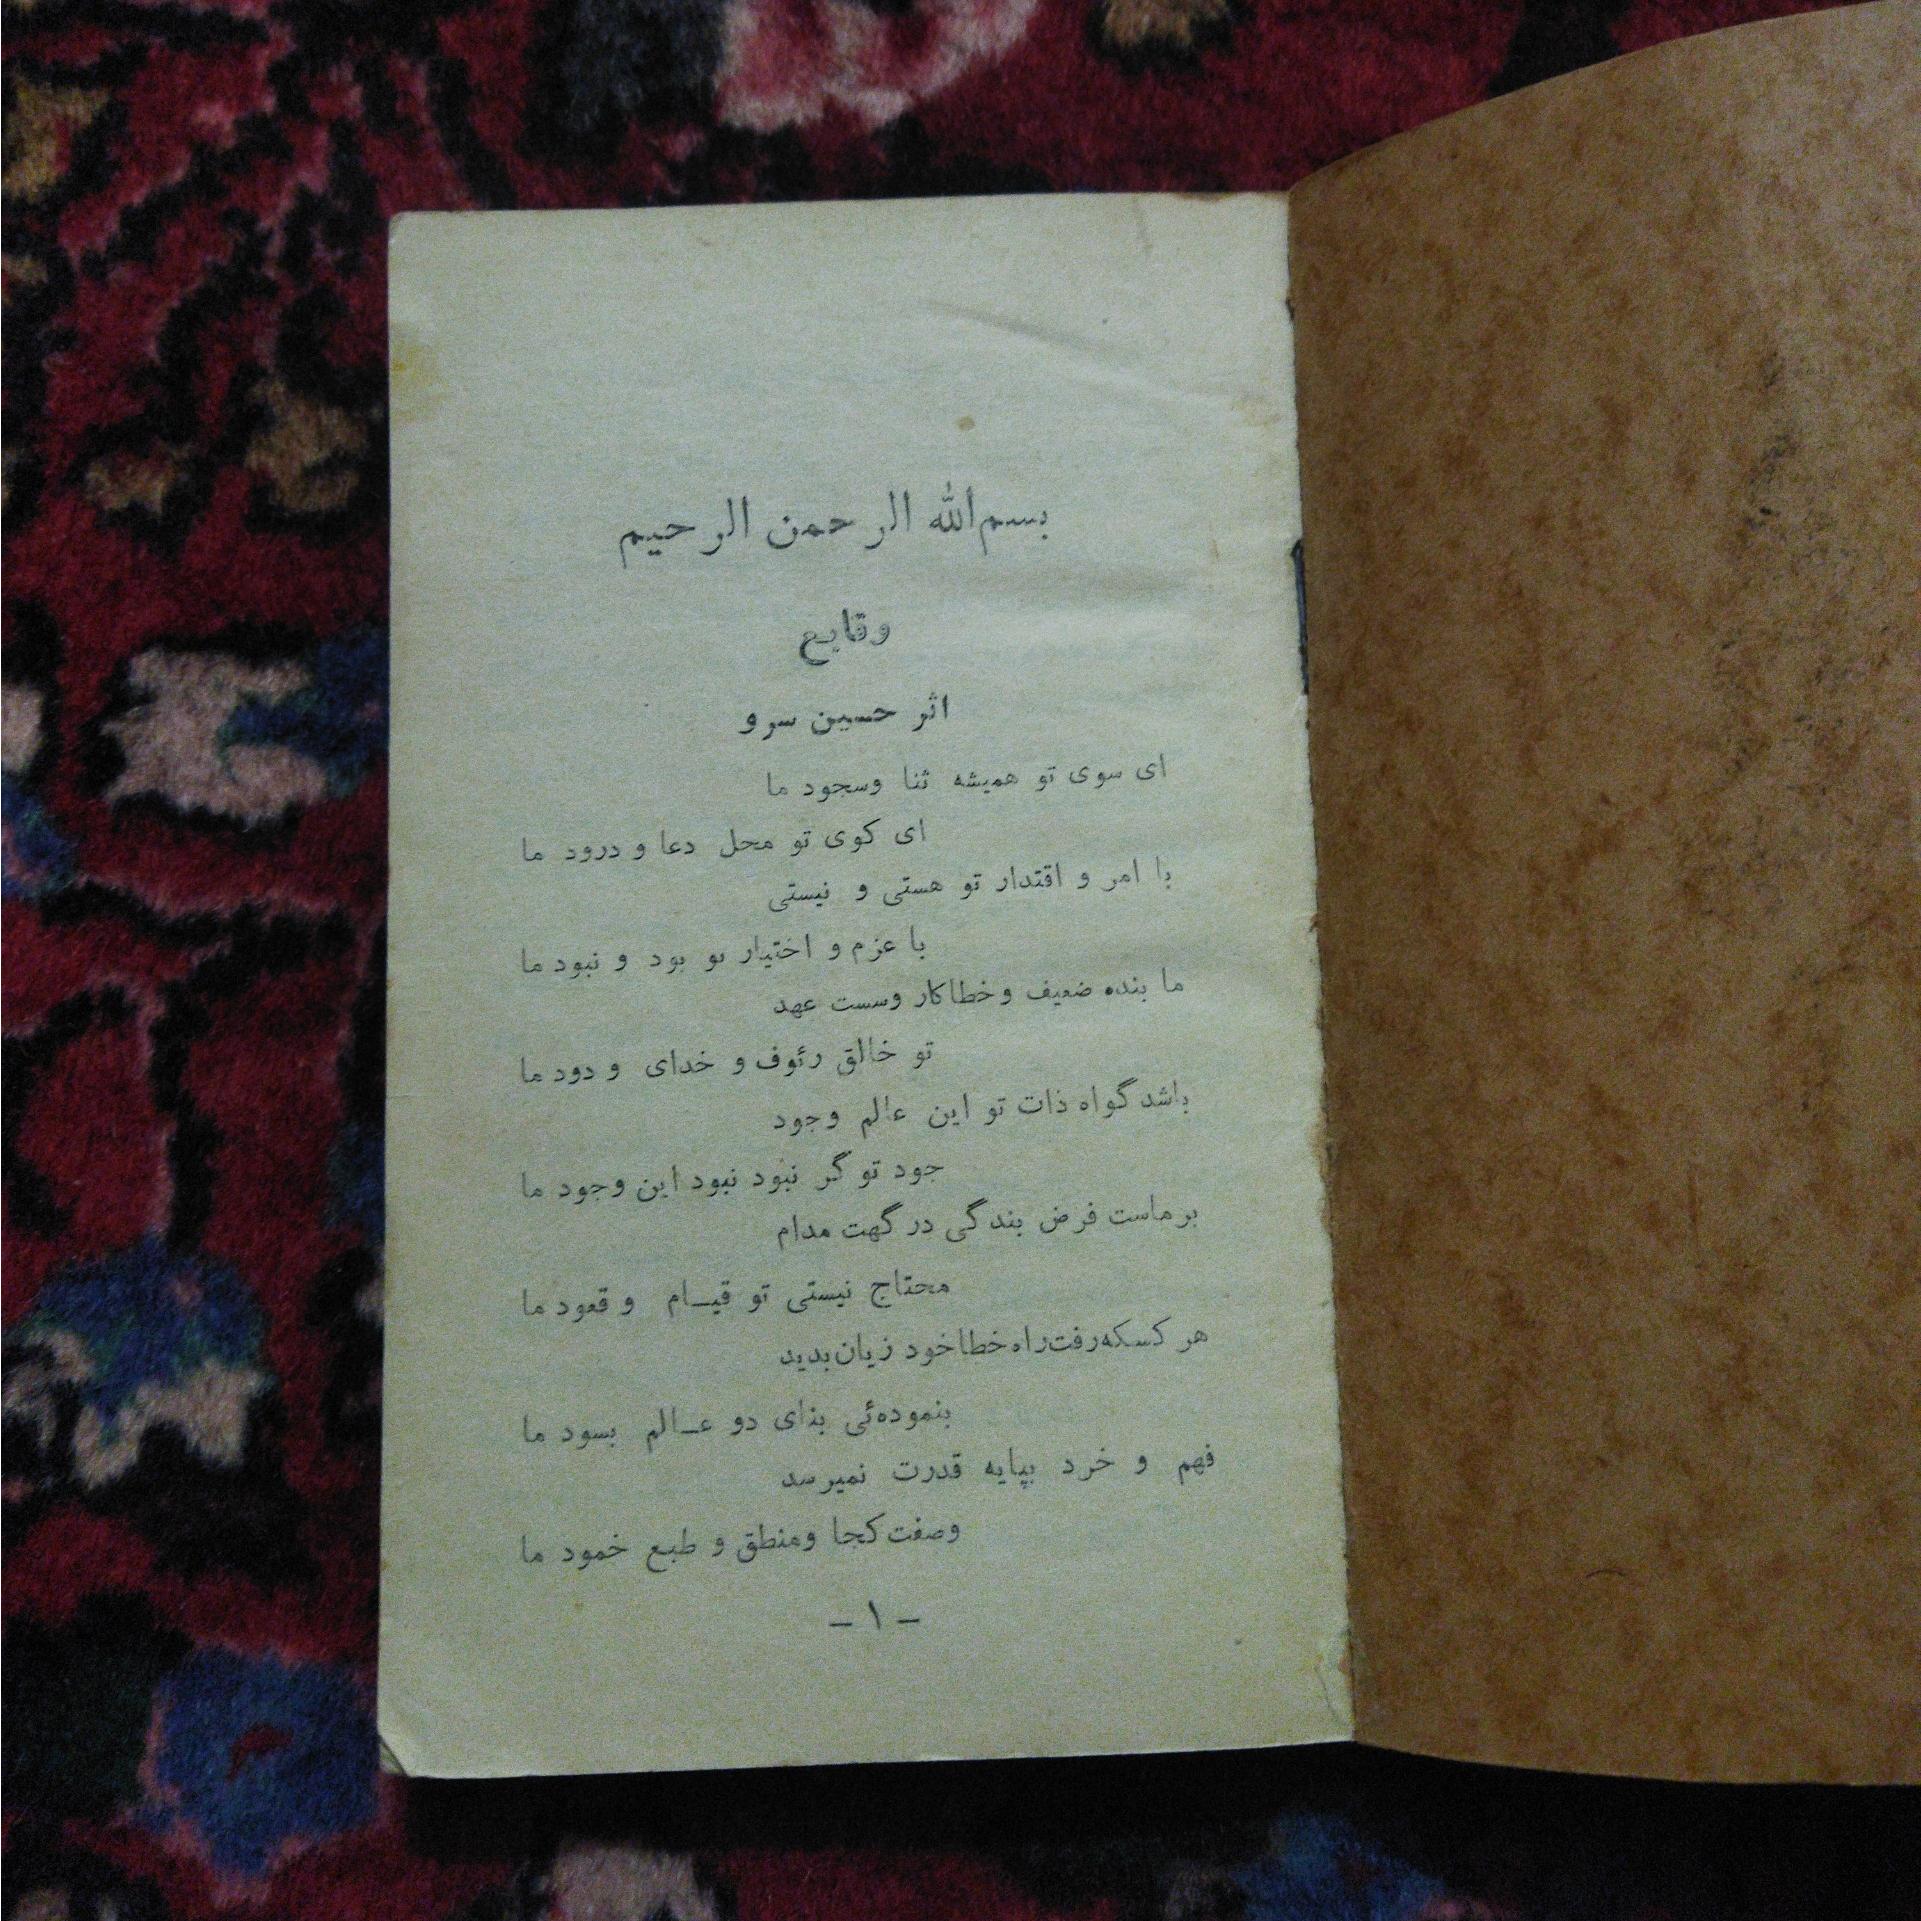 بسم‌الله الرحمن الرحیم
وقایع
اثر حسین سرو
ای سوی تو همیشه ثنا وسجود ما
ای کوی تو محل دعا و درود ما
با امر و اقتدار تو هستی و نیستی
با عزم و اختیار تو بود و نبود ما
ما بنده ضعیف و خطاکار وسست عهد
تو خالق رئوف و خدای ودود ما
باشد گواه ذات تو این عالم وجود
جود تو گر نبود نبود این وجود ما
بر ماست فرض بندگی درگهت مدام
محتاج نیستی تو قیـام و قعود ما
هر کسکه رفت راه خطا خود زیان بدید
بنموده‌ئی بنای دو عـالم بسود ما
فهم و خرد بپایه قدرت نمیرسد
وصفت کجا ومنطق و طبع خمود ما
- ۱ -